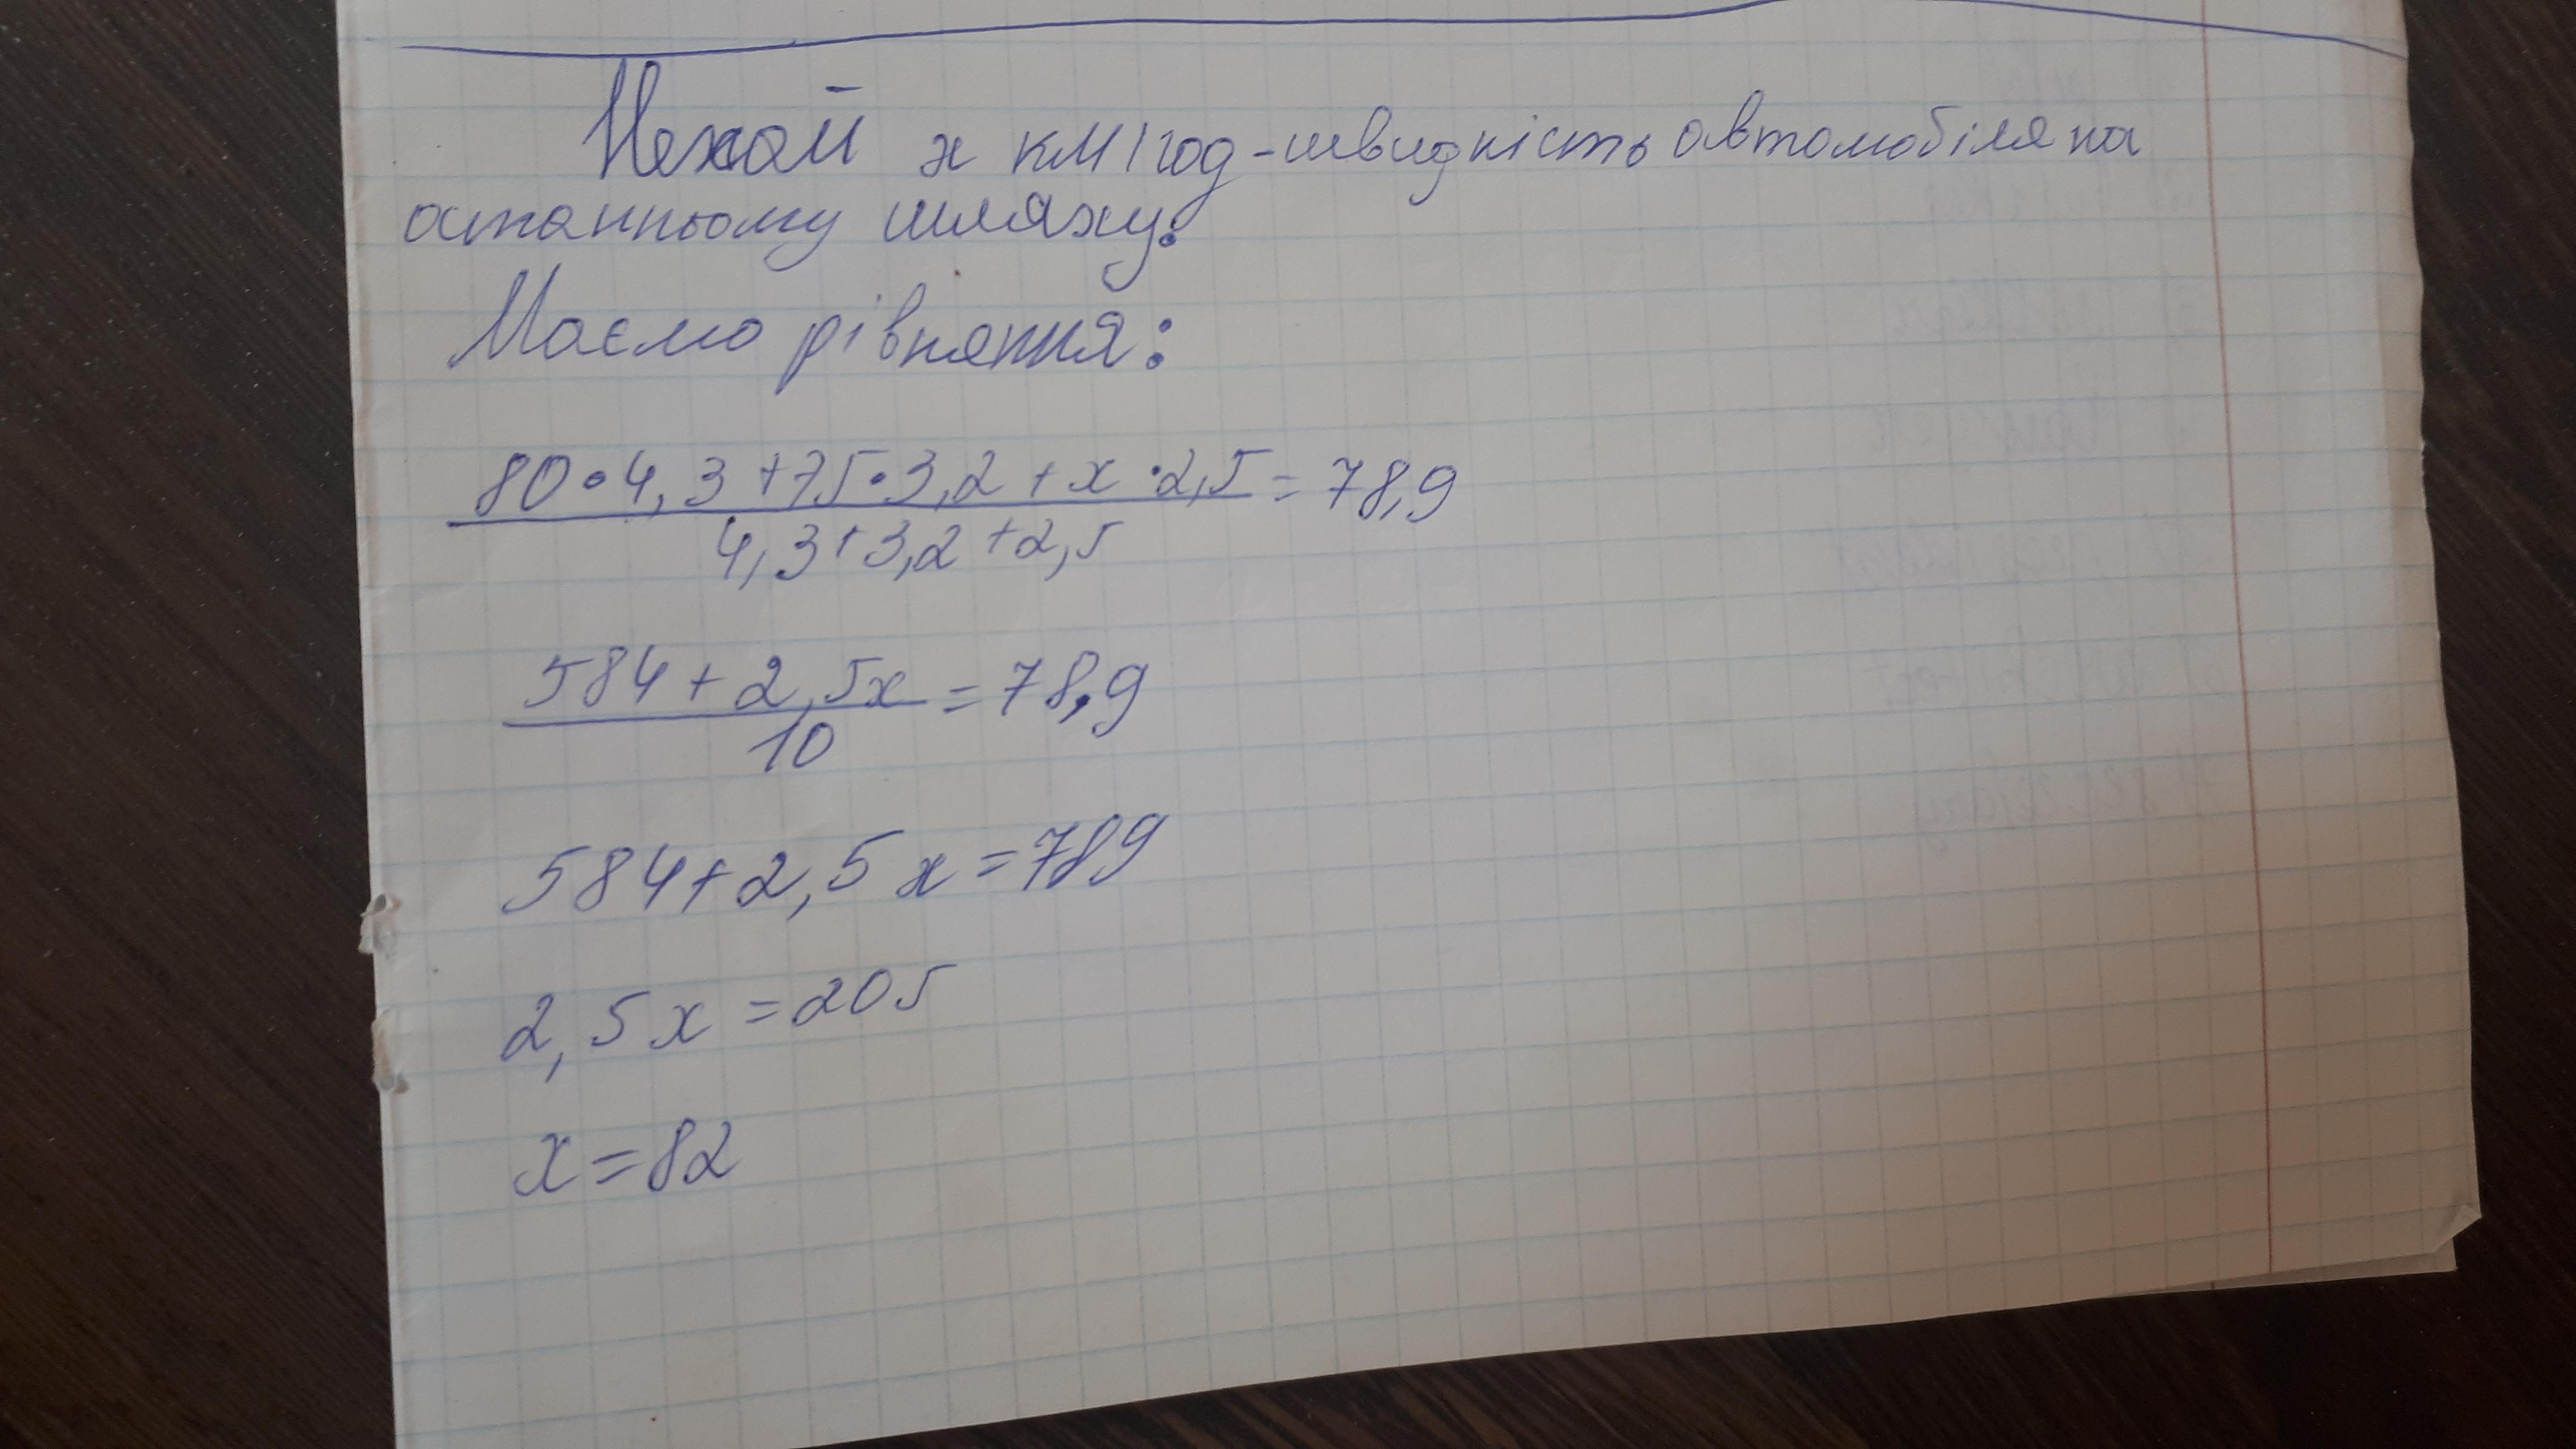 Нехай x км/год - швидкість автомобіля на
останньому шляху.
Маємо рівняння:
80•4,3+75•3,2+x•2,5 = 78,9
4,3+3,2+2,5
584+2,5x = 78,9
10
584+2,5x=789
2,5x=205
x=82